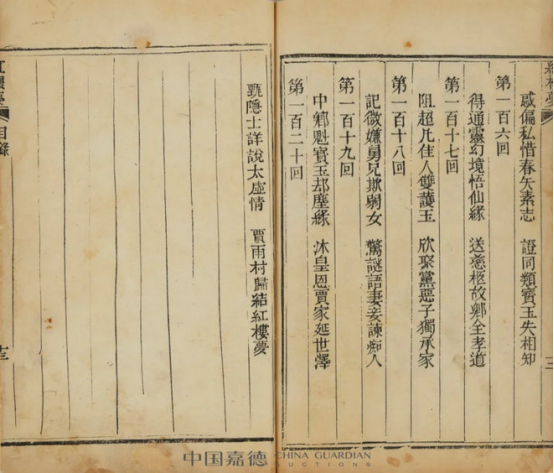 惑偏私惜春矢素志 證同類寶玉失相知
第一百六回
得通靈幻境悟仙緣 送慈柩故鄉全孝道
第一百十七回
阻超凡佳人雙護玉 欣聚黨惡子獨承家
第一百十八回
記微嫌舅兄欺弱女 驚謎語妻妾諫痴人
第一百十九回
中鄉魁寶玉却塵緣 沐皇恩賈家延世澤
第一百二十回
甄隱士詳說太虛情 賈雨村歸結紅樓夢
紅樓夢 目錄 十三
中国嘉德 CHINA GUARDIAN
AUCTIONS